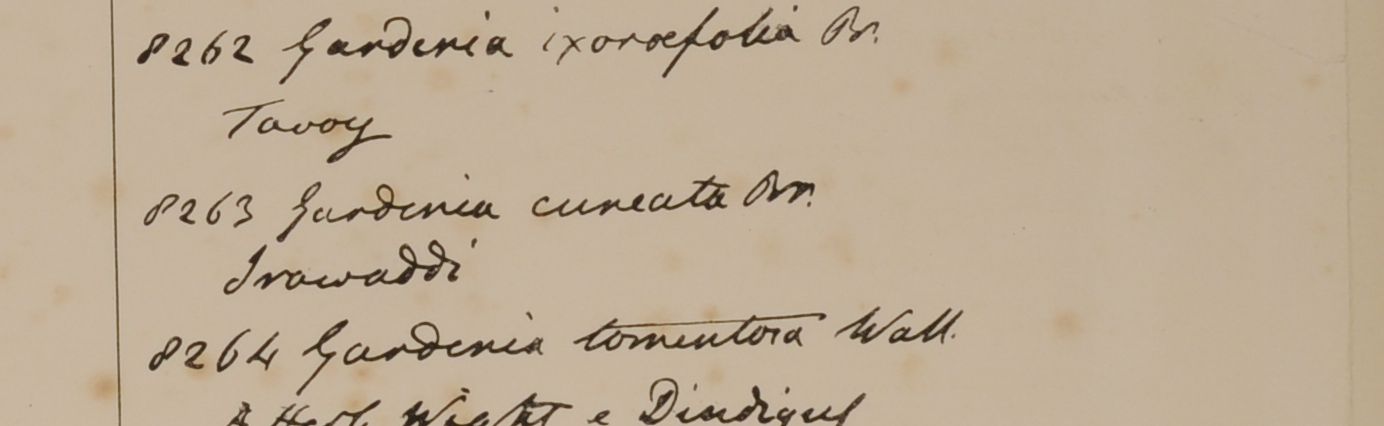 8262 Gardenia ixoræfolia Br.
Tavoy
8263 Gardenia cuneata Br.
Irawaddi
8264 Gardenia tomentosa Wall.
A Herb. Wight e Dindigul